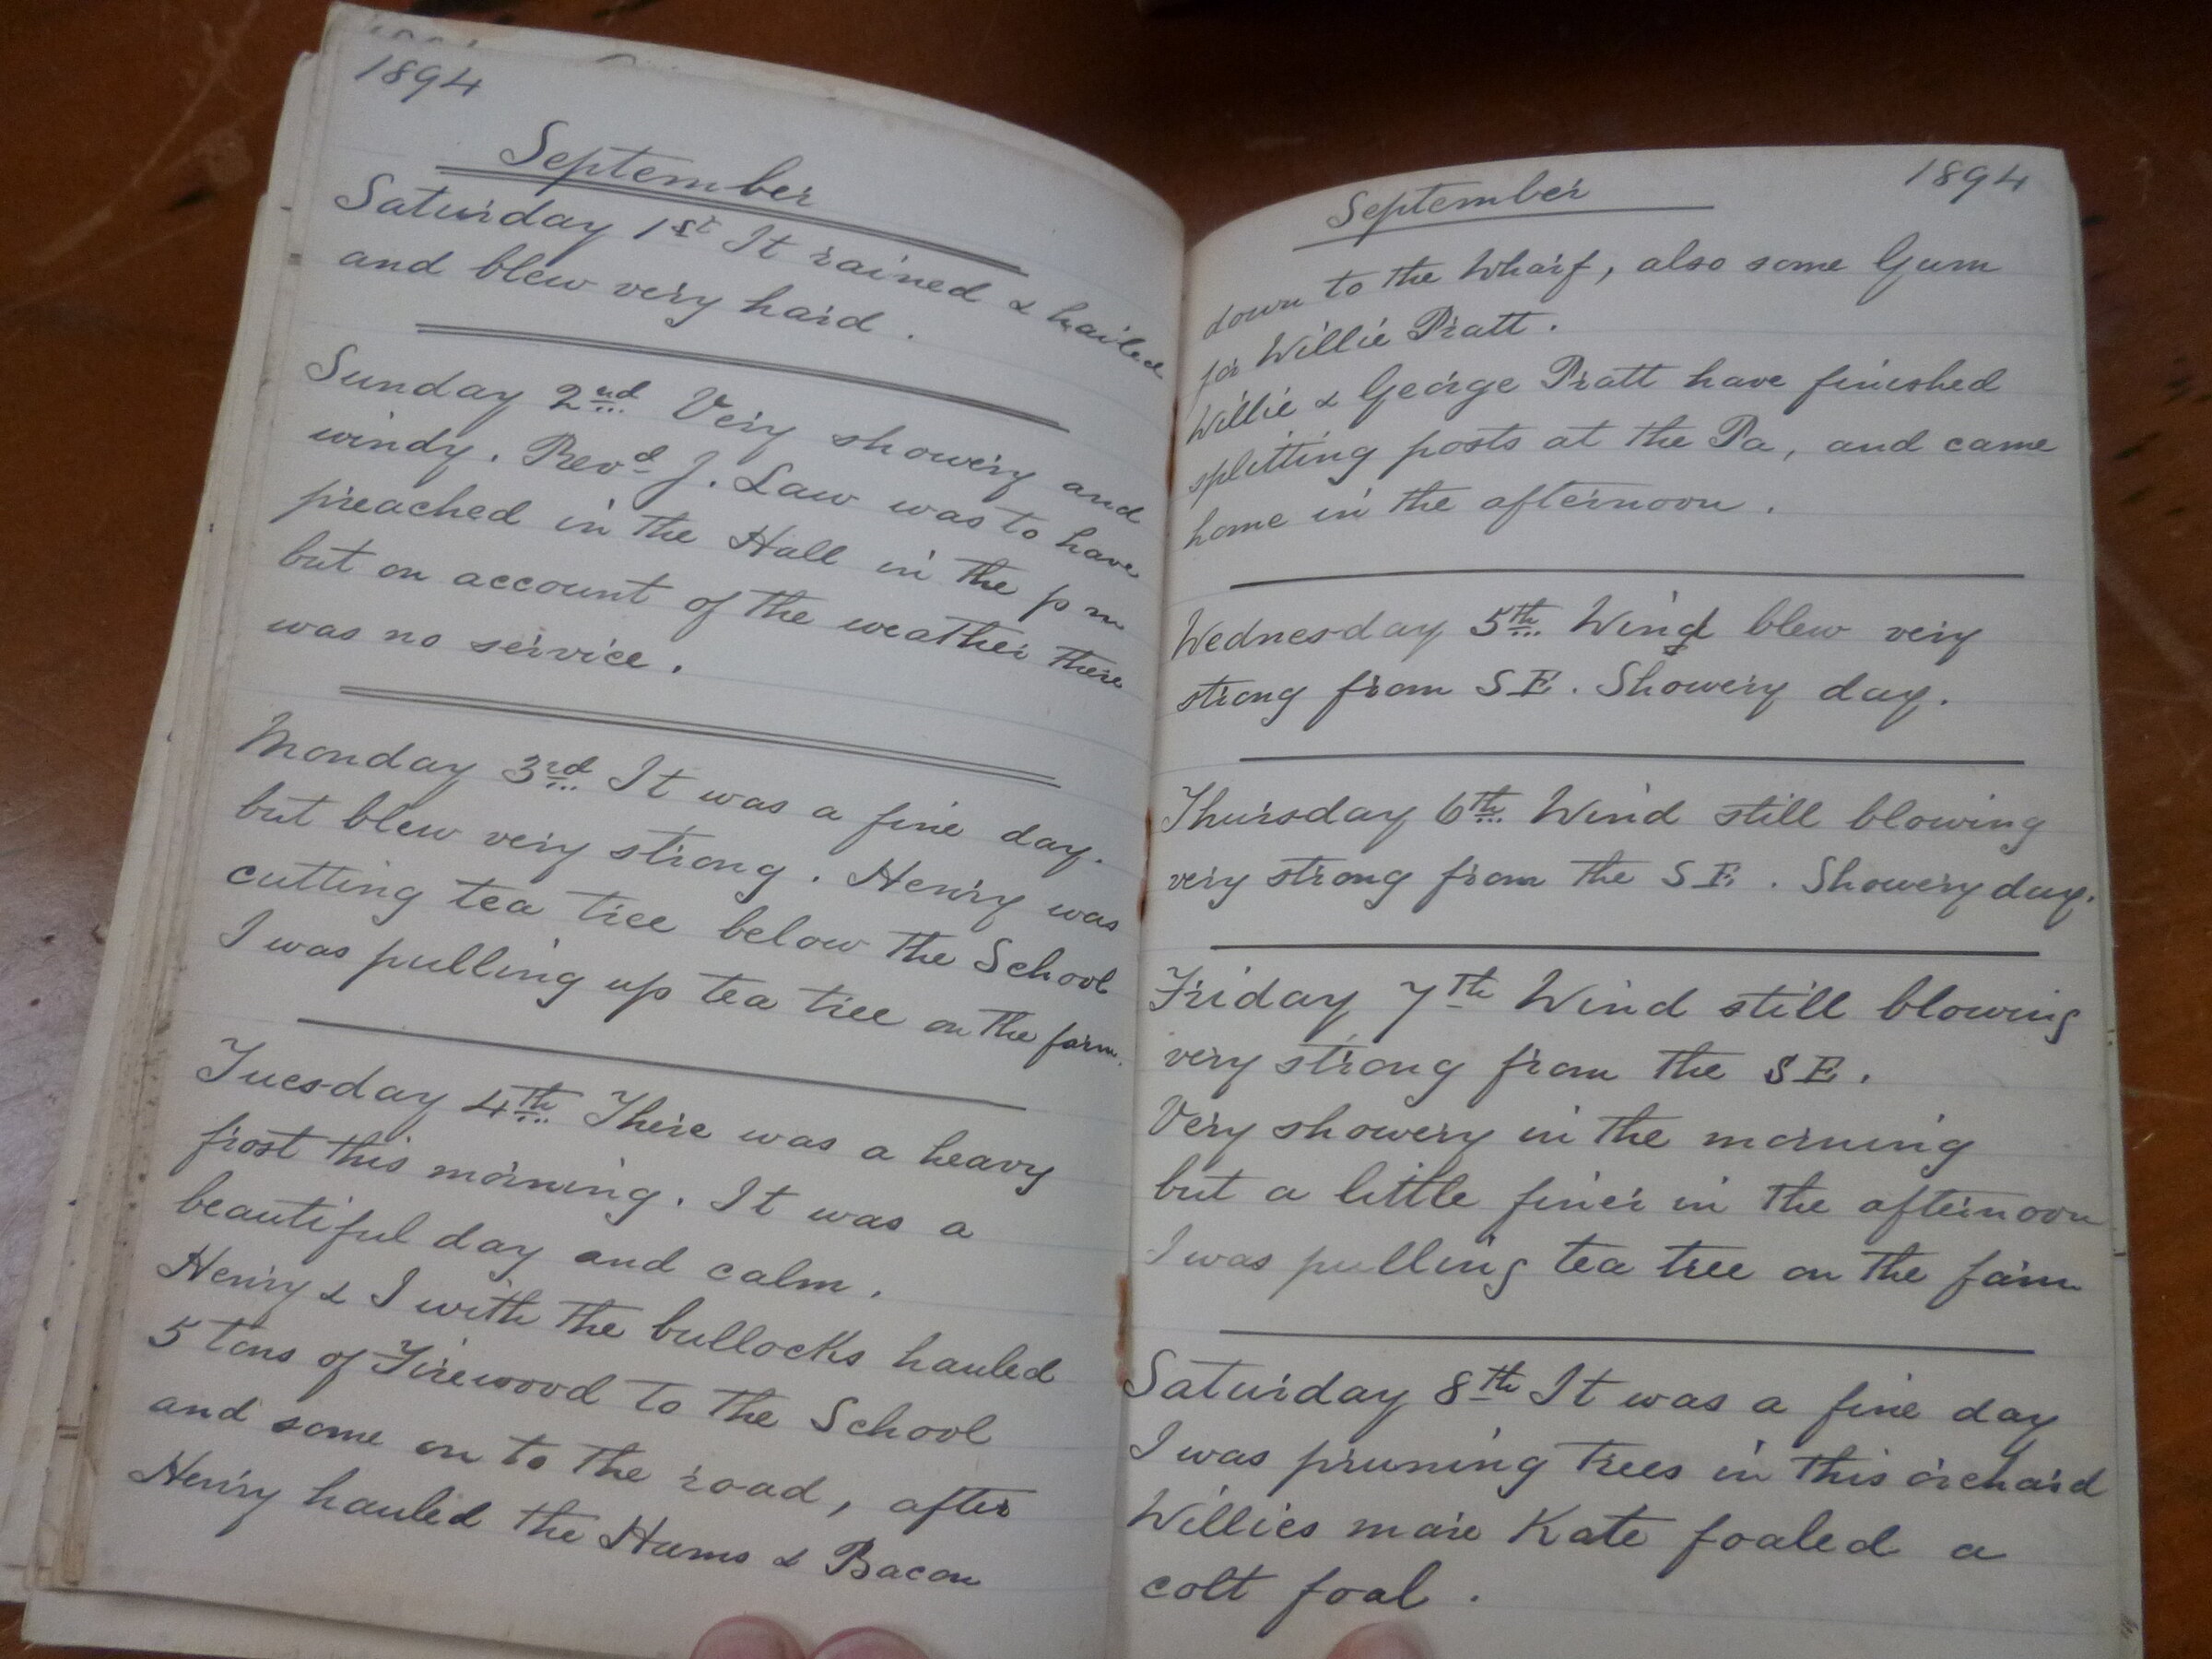 1894
September
Saturday 1st It rained & hailed
and blew very hard.
Sunday 2nd Very showery and
windy. Revd J. Law was to have
preached in the Hall in the pm
but on account of the weather there
was no service.
Monday 3rd It was a fine day.
but blew very strong. Henry was
cutting tea tree below the School
I was pulling up tea tree on the farm.
Tuesday 4th There was a heavy
frost this morning. It was a
beautiful day and calm.
Henry & I with the bullocks hauled
5 tons of Firewood to the School
and some on to the road, after
Henry hauled the Hams & Bacon
September 1894
down to the Wharf, also some Gum
for Willie Pratt.
Willie & George Pratt have finished
splitting posts at the Pa, and came
home in the afternoon.
Wednesday 5th Wind blew very
strong from SE. Showery day.
Thursday 6th Wind still blowing
very strong from the SE. Showery day.
Friday 7th Wind still blowing
very strong from the SE.
Very showery in the morning
but a little finer in the afternoon
I was pulling tea tree on the farm
Saturday 8th It was a fine day
I was pruning trees in this orchard
Willies mare Kate foaled a
colt foal.